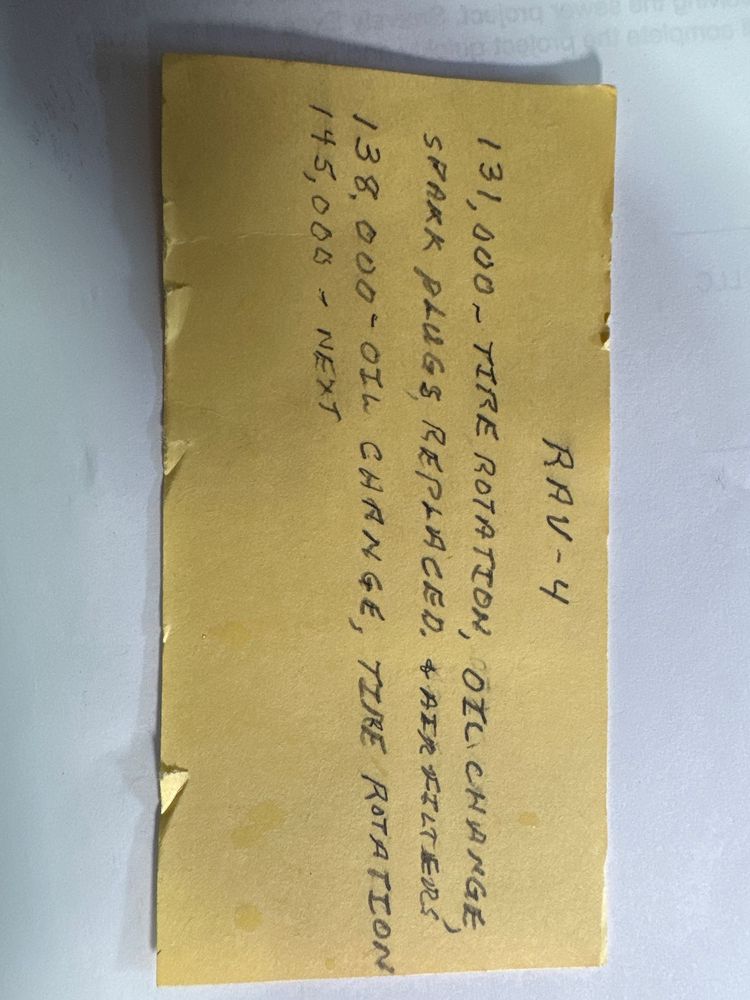 RAV-4
131,000 - TIRE ROTATION, OIL CHANGE,
SPARK PLUGS REPLACED. & AIR FILTERS
138,000 - OIL CHANGE, TIRE ROTATION
145,000 - NEXT
olving this sewer project.
complete the project quickly
LLC